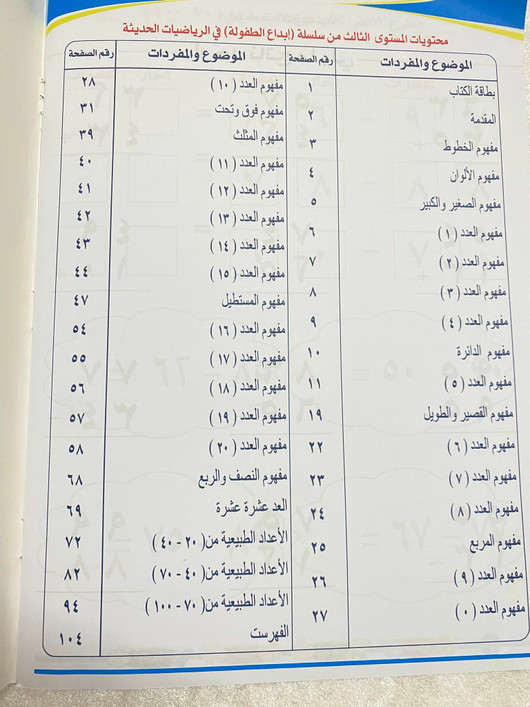 محتويات المستوى الثالث من سلسلة (إبداع الطفولة) في الرياضيات الحديثة
الموضوع والمفردات رقم الصفحة
بطاقة الكتاب ١
المقدمة ٢
مفهوم الخطوط ٣
مفهوم الألوان ٤
مفهوم الصغير والكبير ٥
مفهوم العدد (١) ٦
مفهوم العدد (٢) ٧
مفهوم العدد (٣) ٨
مفهوم العدد (٤) ٩
مفهوم الدائرة ١٠
مفهوم العدد (٥) ١١
مفهوم القصير والطويل ١٩
مفهوم العدد (٦) ٢٢
مفهوم العدد (٧) ٢٣
مفهوم العدد (٨) ٢٤
مفهوم المربع ٢٥
مفهوم العدد (٩) ٢٦
مفهوم العدد (٠) ٢٧
الموضوع والمفردات رقم الصفحة
مفهوم العدد (١٠) ٢٨
مفهوم فوق وتحت ٣١
مفهوم المثلث ٣٩
مفهوم العدد (١١) ٤٠
مفهوم العدد (١٢) ٤١
مفهوم العدد (١٣) ٤٢
مفهوم العدد (١٤) ٤٣
مفهوم العدد (١٥) ٤٤
مفهوم المستطيل ٤٧
مفهوم العدد (١٦) ٥٤
مفهوم العدد (١٧) ٥٥
مفهوم العدد (١٨) ٥٦
مفهوم العدد (١٩) ٥٧
مفهوم العدد (٢٠) ٥٨
مفهوم النصف والربع ٦٨
العد عشرة عشرة ٦٩
الأعداد الطبيعية من (٢٠ - ٤٠) ٧٢
الأعداد الطبيعية من (٤٠ - ٧٠) ٨٢
الأعداد الطبيعية من (٧٠ - ١٠٠) ٩٤
الفهرست ١٠٤